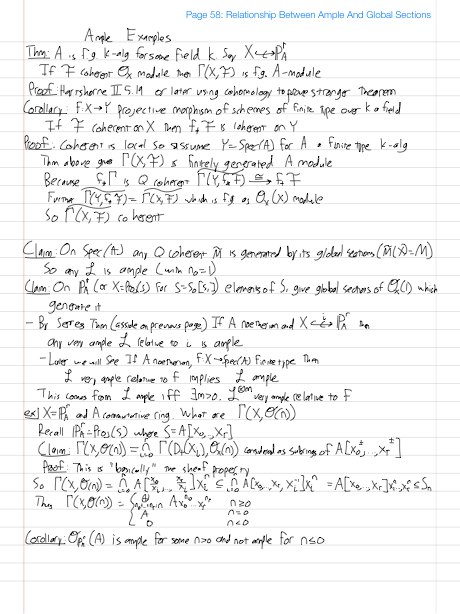 Page 58: Relationship Between Ample And Global Sections
Ample Examples
Thm: A is f.g. k-alg for some field k. Say X ↪ ℙ^r_A
If F coherent O_X module then Γ(X,F) is f.g. A-module
Proof: Hartshorne II 5.19 or later using cohomology to prove stronger theorem
Corollary: F:X→Y projective morphism of schemes of finite type over k a field
If F coherent on X then f_* F is coherent on Y
Proof: Coherent is local so assume Y=Spec(A) for A a finite type k-alg
Thm above gives Γ(X,F) is finitely generated A module
Because f_* F is Q coherent Γ(Y,f_*F) ≅ f_* F
Further Γ(Y,f_*F) = Γ(X,F) which is f.g. as O_Y(X) module
So Γ(X,F) coherent
Claim: On Spec(A) any Q coherent M̃ is generated by its global sections (M̃(X)=M)
So any L is ample (with n_0=1)
Claim: On ℙ^r_A (or X=Proj(S) for S=S_0[S_1]) elements of S_1 give global sections of O_X(1) which
generate it
- By Serres Thm (aside on previous page) If A noetherian and X ↪^i ℙ^r_A then
any very ample L relative to i is ample
- Later we will see If A noetherian, F:X→Spec(A) Finite type Then
L very ample relative to F implies L ample
This comes from L ample iff ∃m>0. L^{⊗m} very ample relative to F
ex] X=ℙ^r_A and A commutative ring. What are Γ(X,O(n))
Recall ℙ^r_A=Proj(S) where S=A[x_0,...,x_r]
Claim: Γ(X,O(n)) = ∩_{i=0}^r Γ(D_+(x_i),O_X(n)) considered as subrings of A[x_0^±,...,x_r^±]
Proof: This is "basically" the sheaf property
So Γ(X,O(n)) = ∩_{i=0}^r A[x_0/x_i,...,x_r/x_i]x_i^n ⊆ ∩_{i=0}^r A[x_0,...,x_r,x_i^{-1}]x_i^n = A[x_0,...,x_r]
Thus Γ(X,O(n)) = { ⊕ A x_0^{n_0}...x_r^{n_r} n≥0
A n=0
0 n<0
Corollary: O_{ℙ^r_A}(A) is ample for some n>0 and not ample for n≤0